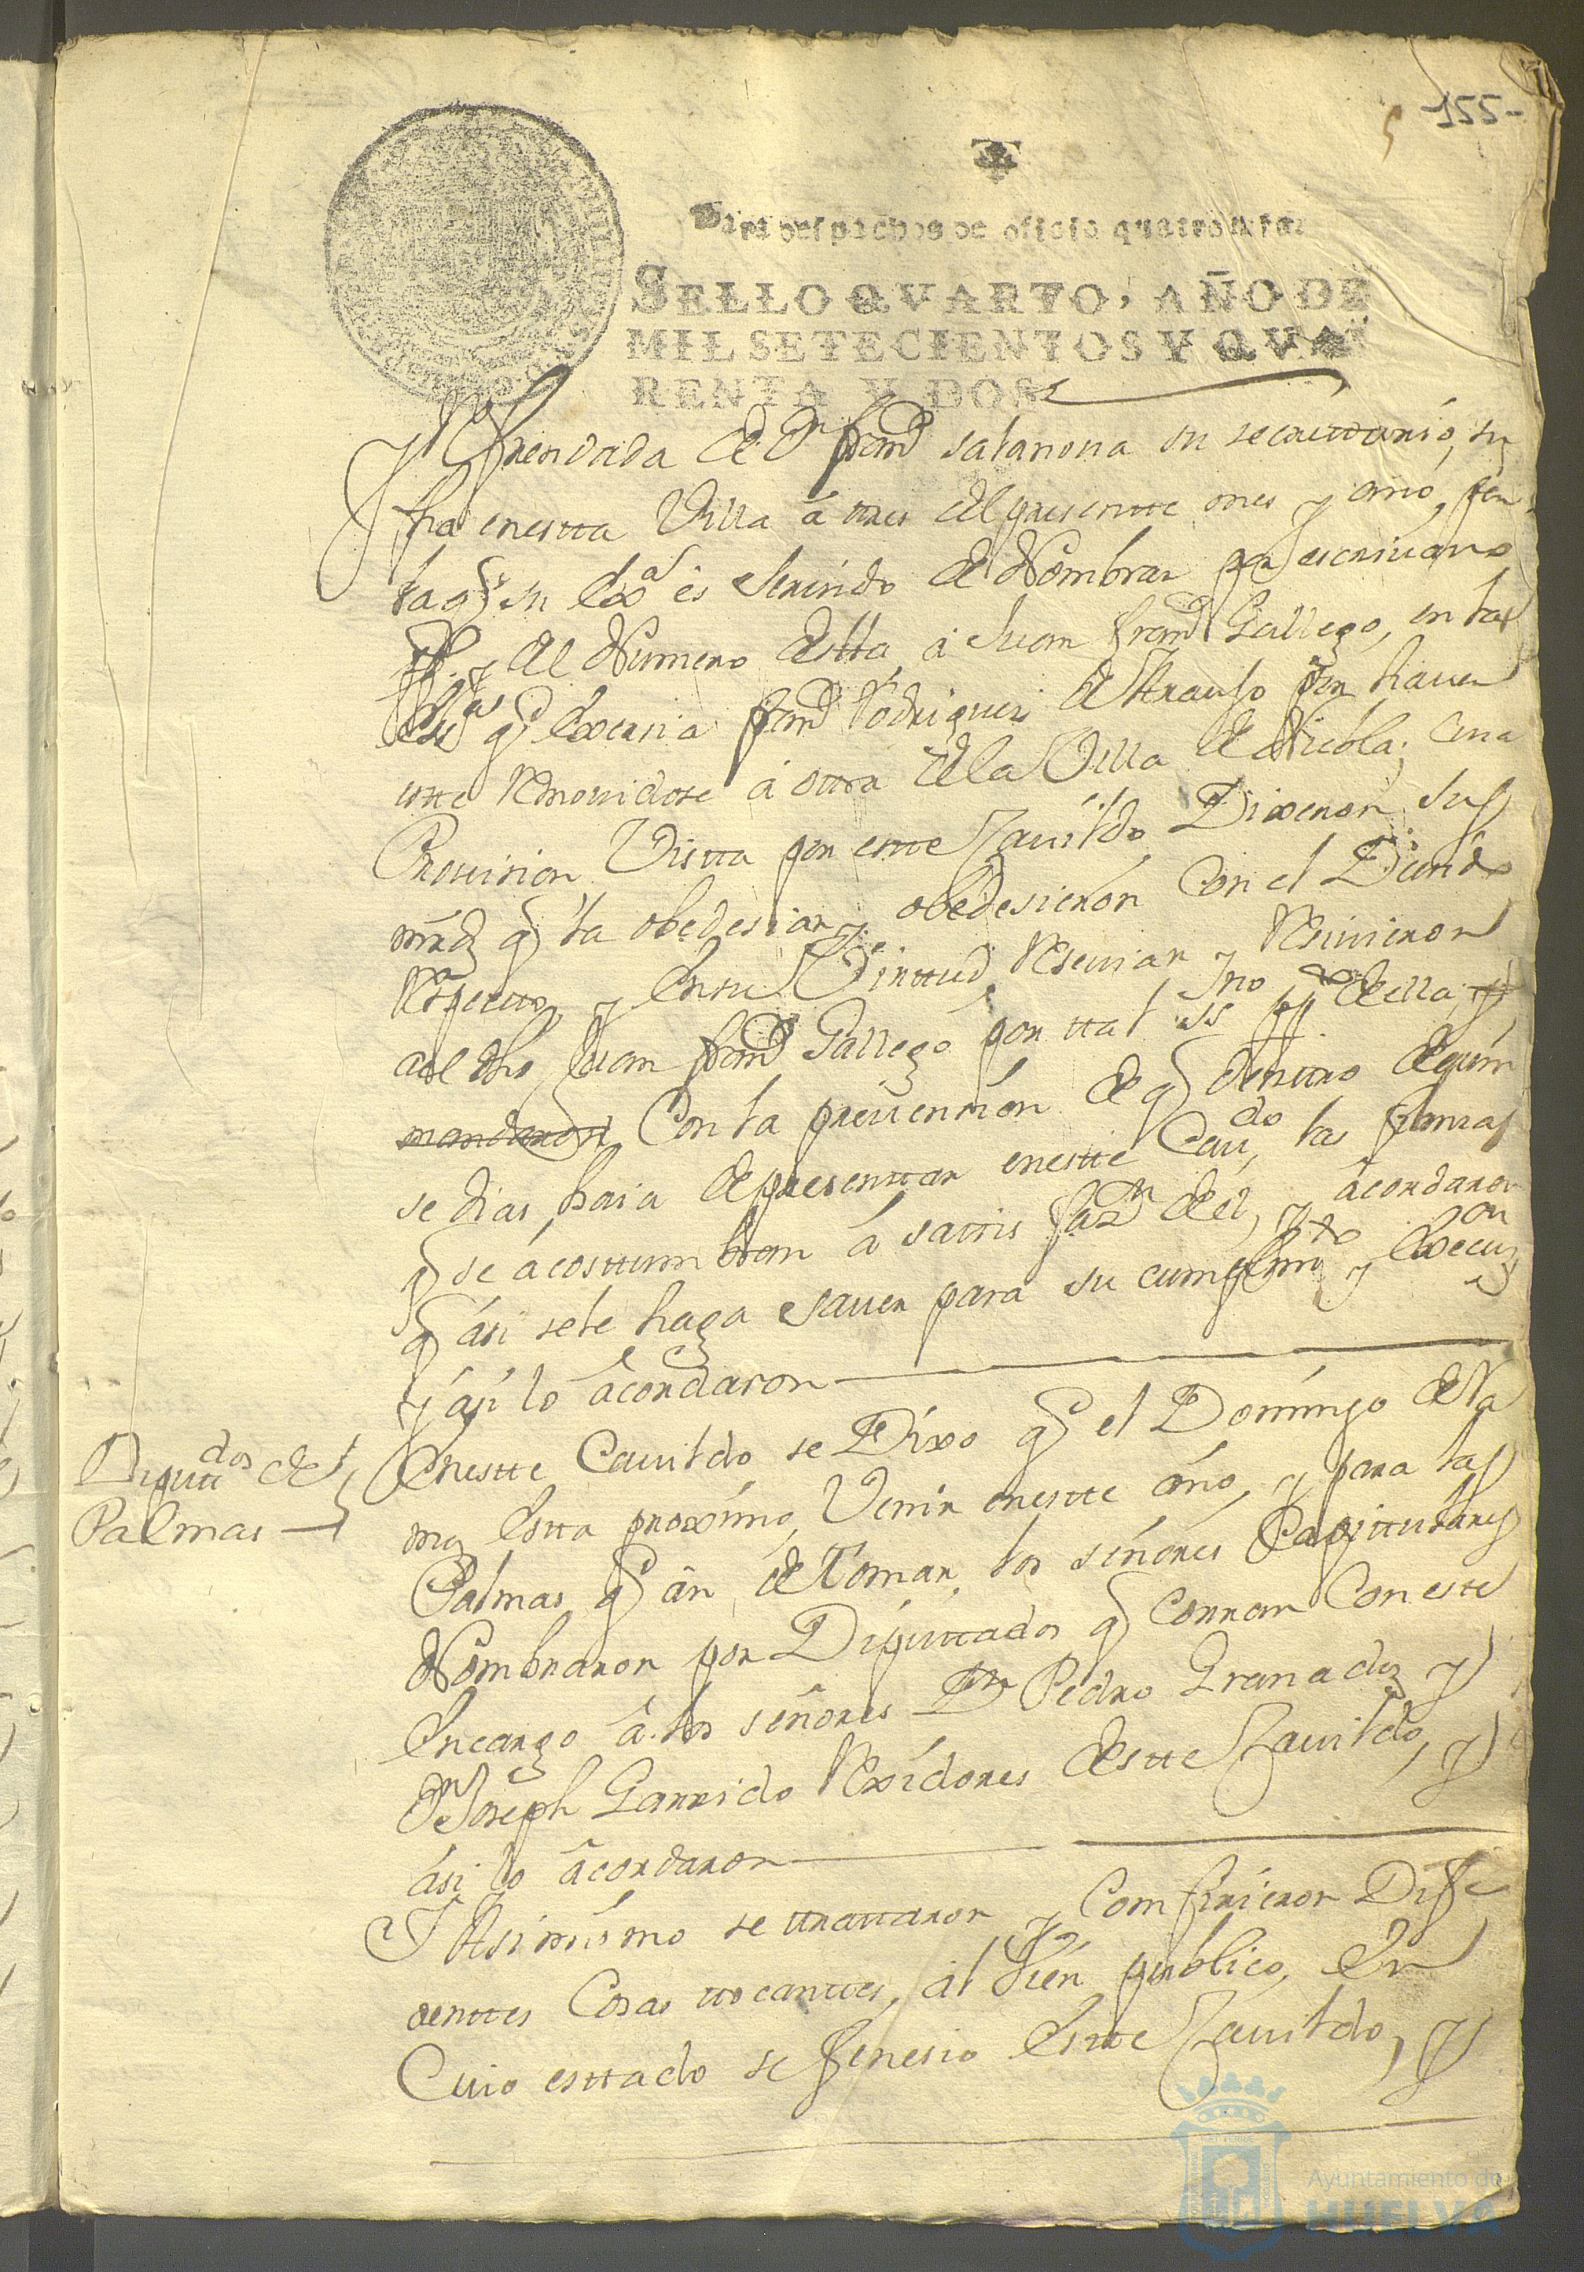 5 155-
Para despachos de oficio quatro mrs.
SELLO QVARTO, AÑO DE
MIL SETECIENTOS Y QVA
RENTA Y DOS
y Refrendada de Dn. franco satanona su secrettario, su
fha en estta Villa á ttres del presentte mes y año, por
la qe su Exa. es Servido de Nombrar por escrivano
pp.co y del Numero destta, á Juan franco Gallego, en las
qe Exersia franco Rodrigues de Araujo por haver
estte Removidose á ottra de la Villa de Niebla; Cuia
Provision Vistta por estte Cavildo Dixeron Sus
mrds. q la obedesian, y obedesieron Con el Devido
Respectto, y Ensu Virttud, Resevian y Resivieron
al dho Juan franco Gallego por ttal ss. ppco. de ella,
mandaron Con la prevension de q denttro de quin
se dias haia de presenttar en estte Cavdo. las fianzas
q se ácosttumbran á sattisfazn. del, y ácordaron
q ási se le haga Saver para su cumplimto. y Execuzon
y ási lo ácordaron
Diputtdos de
Palmas
En estte Cavildo se Dixo q el Domingo de Ra
mos Estta proximo, Venir en estte año, y para las
Palmas q án de Tomar los señores Capittulares
Nombraron por Diputtados q Corran Con este
Encargo á los señores Dn. Pedro Granados y
Dn. Joseph Garrido Rexidores destte Cavildo, y
ási lo ácordaron
Y Asimismo se ttrattaron y Comfirieron Dife
renttes Cosas ttocanttes, ál Vien publico, En
Cuio esttado se fenesio Estte Cavildo, y
Ayuntamiento de
HUELVA